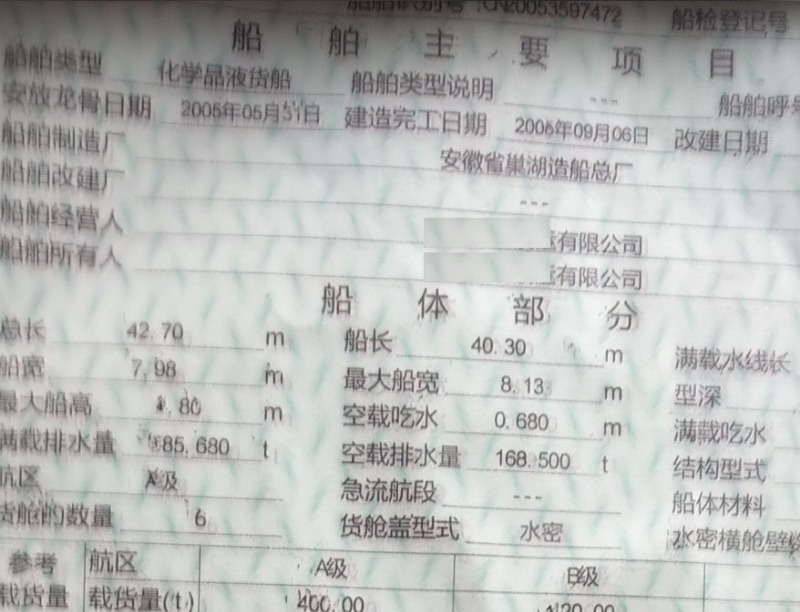 船舶识别号 :CN20053597472 船检登记号
船舶主要项目
船舶类型 化学品液货船 船舶类型说明 --- 船舶呼号
安放龙骨日期 建造完工日期 2005年09月06日 改建日期
船舶制造厂 安徽省巢湖造船总厂
船舶改建厂 ---
船舶经营人 有限公司
船舶所有人 有限公司
船体部分
总长 42.70 m 船长 40.30 m 满载水线长
船宽 7.98 m 最大船宽 8.13 m 型深
最大船高 m 空载吃水 0.680 m 满载吃水
满载排水量 t 空载排水量 168.500 t 结构型式
航区 急流航段 --- 船体材料
货舱的数量 6 货舱盖型式 水密 水密横舱壁
参考 航区 A级 B级
载货量 载货量(t) 400.00 420.00